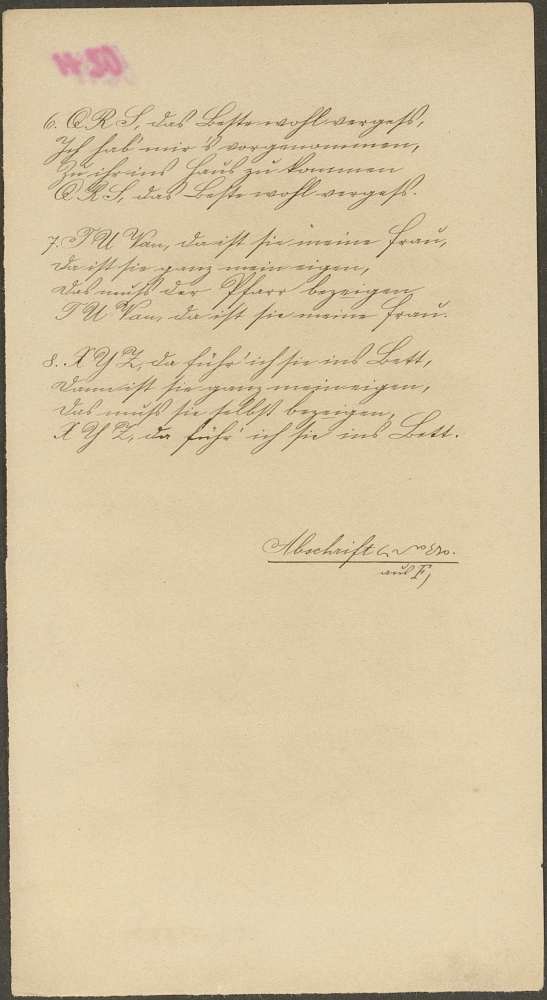 6. Q R S, das Beste wohl vergess,
Ich hab' mir's vorgenommen,
Zu ihr ins Haus zu kommen
Q R S, das Beste wohl vergess.
7. T U Vau, da ist sie meine Frau,
Da ist sie ganz mein eigen,
Das muss der Pfarr bezeigen
T U Vau, da ist sie meine Frau.
8. X Y Z, da führ' ich sie ins Bett,
Dann ist sie ganz mein eigen,
Das muss sie selbst bezeigen,
X Y Z, da führ' ich sie ins Bett.
Abschrift
aus